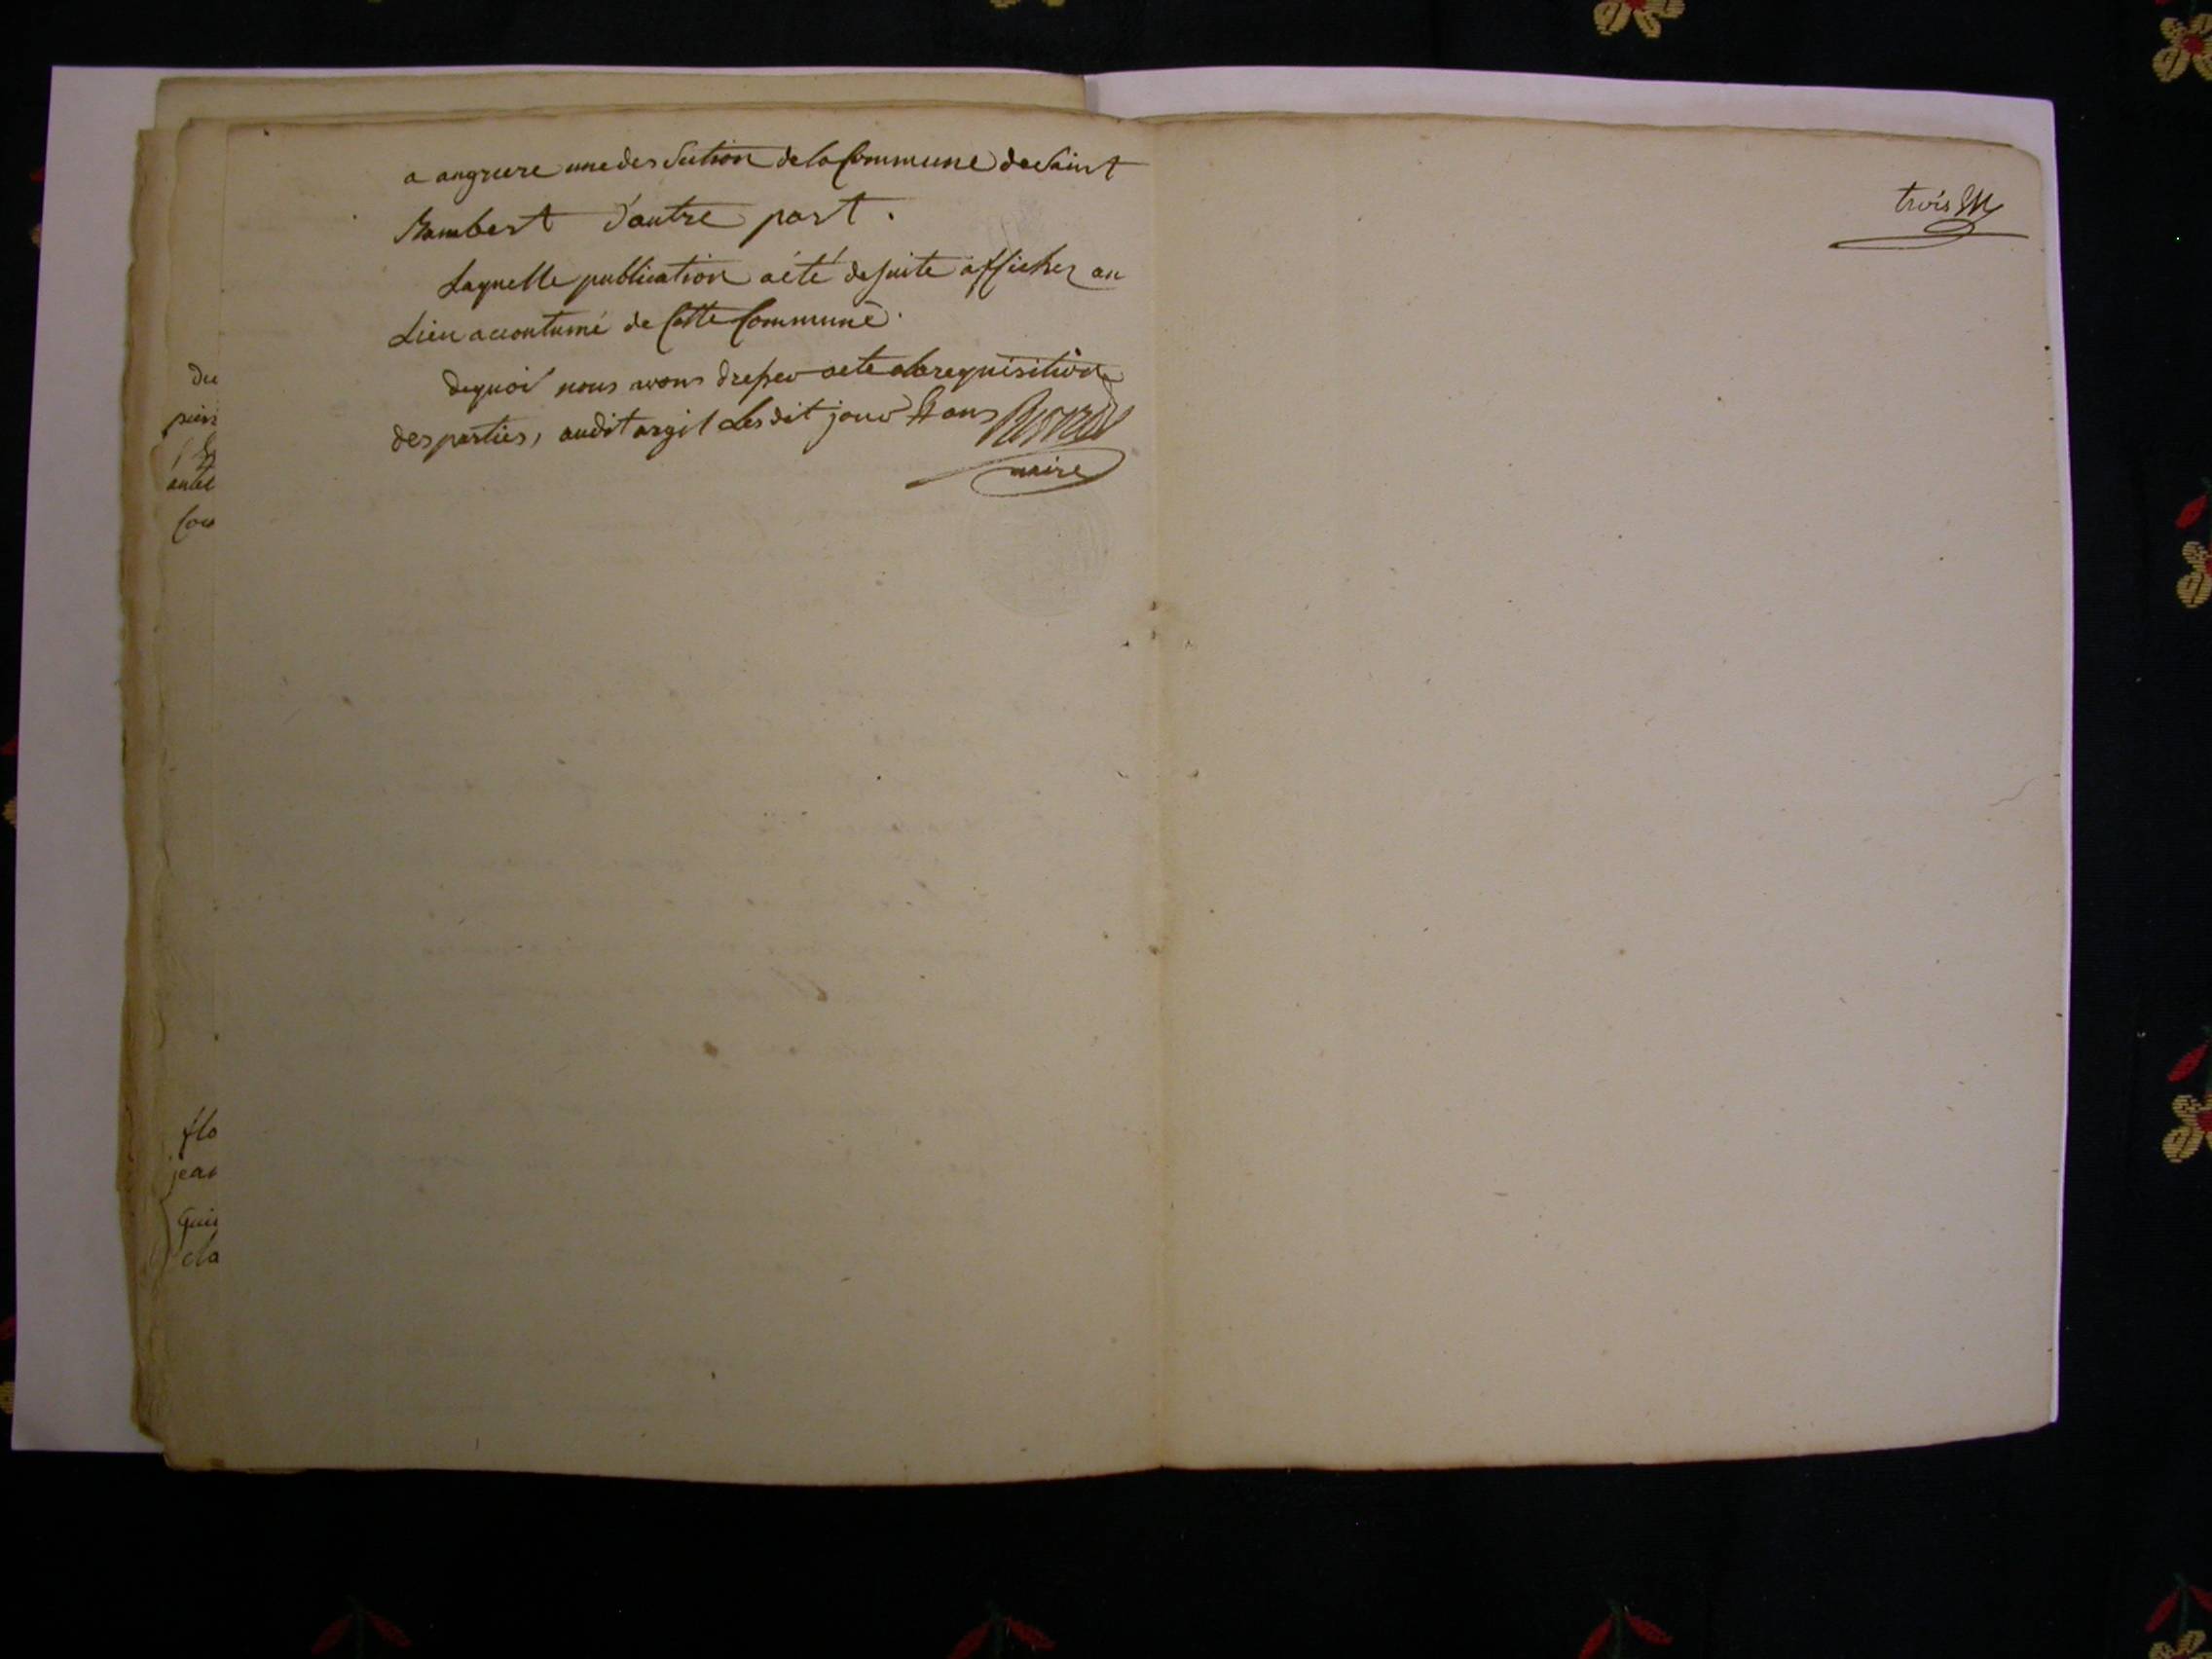 a angriere une des Section de la Commune de Saint
Rambert d'autre part.
Laquelle publication a été de suite afficher au
Lieu accoutumé de Cette Commune.
de quoi nous avons dresser acte a la requisition
des parties, audit argil Les dit jour & ans
maire
trois
du
pier
autel
flo
jean
Gui
cla